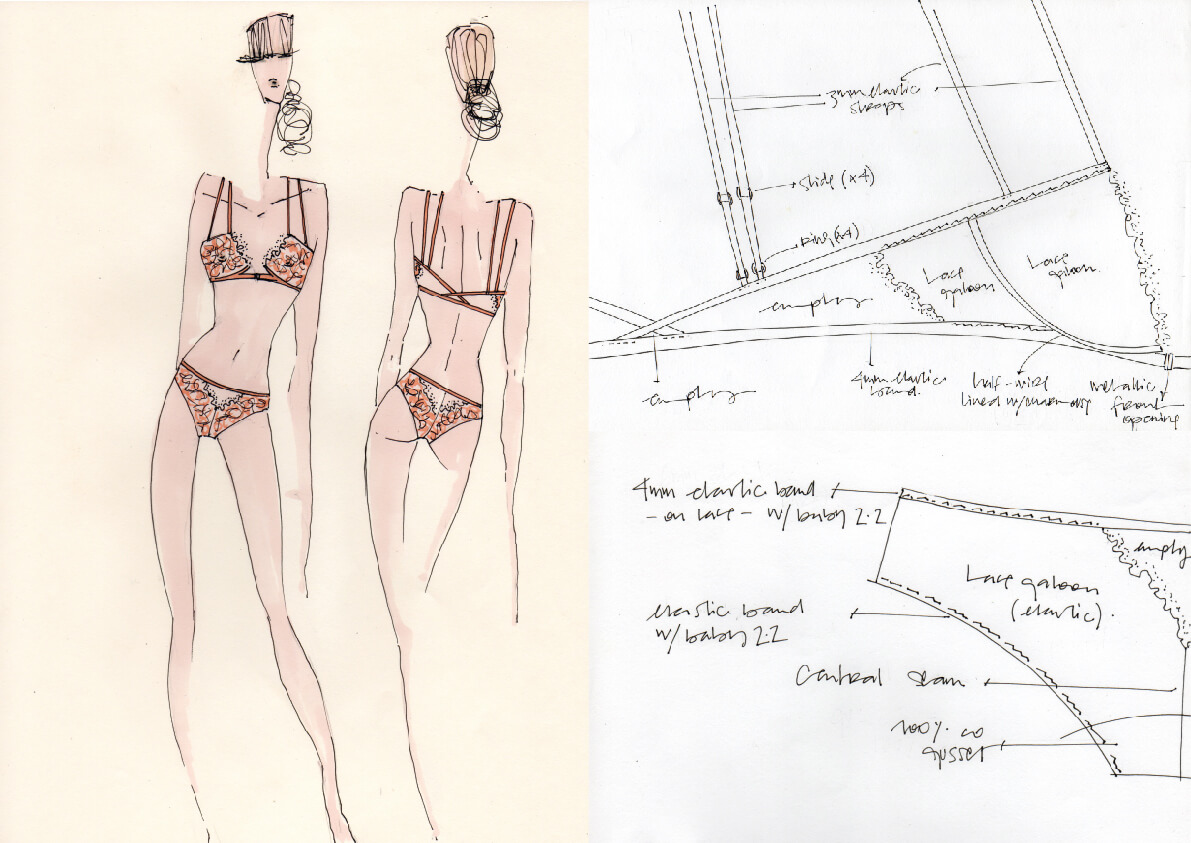 3mm elastic
straps
slide (x4)
Ring (x4)
Lace
galoon
Lace
galoon.
4mm elastic
band.
half-wire
lined w/
metallic
front
opening
4mm elastic band
- on lace - w/ baby 2.2
Lace galoon
(elastic).
elastic band
w/ baby 2.2
Central seam
100% co
gusset